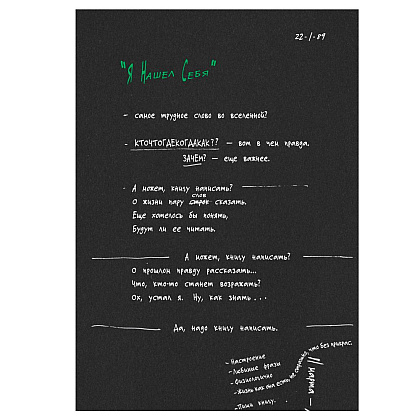 22-1-89
"Я Нашел Себя"
- самое трудное слово во вселенной?
- КТОЧТОГДЕКОГДАКАК?? - вот в чем правда.
ЗАЧЕМ? - еще важнее.
- А может, книгу написать?
слов
О жизни пару строк сказать.
Еще хотелось бы понять,
Будут ли ее читать.
А может, книгу написать?
О прошлом правду рассказать...
Что, кто-то станет возражать?
Ох, устал я. Ну, как знать...
Да, надо книгу написать.
- Настроение
- Любимые фразы
- Физиологично
- Жизнь как она есть, не страшно, что без прикрас.
- Пиши книгу.